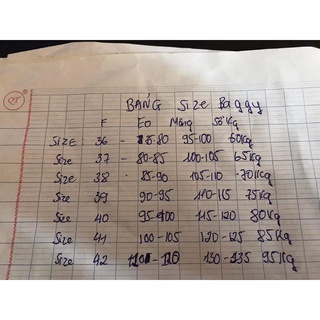 BẢNG Size Baggy
F Eo Mông Số Kg
SIZE: 36 - 75-80 95-100 60Kg
Size 37 - 80-85 100-105 65Kg
Size 38 85-90 105-110 -70Kg
Size 39 90-95 110-115 75Kg
Size 40 95-100 115-120 80Kg
Size 41 100-105 120-125 85Kg
Size 42 130-135 95Kg